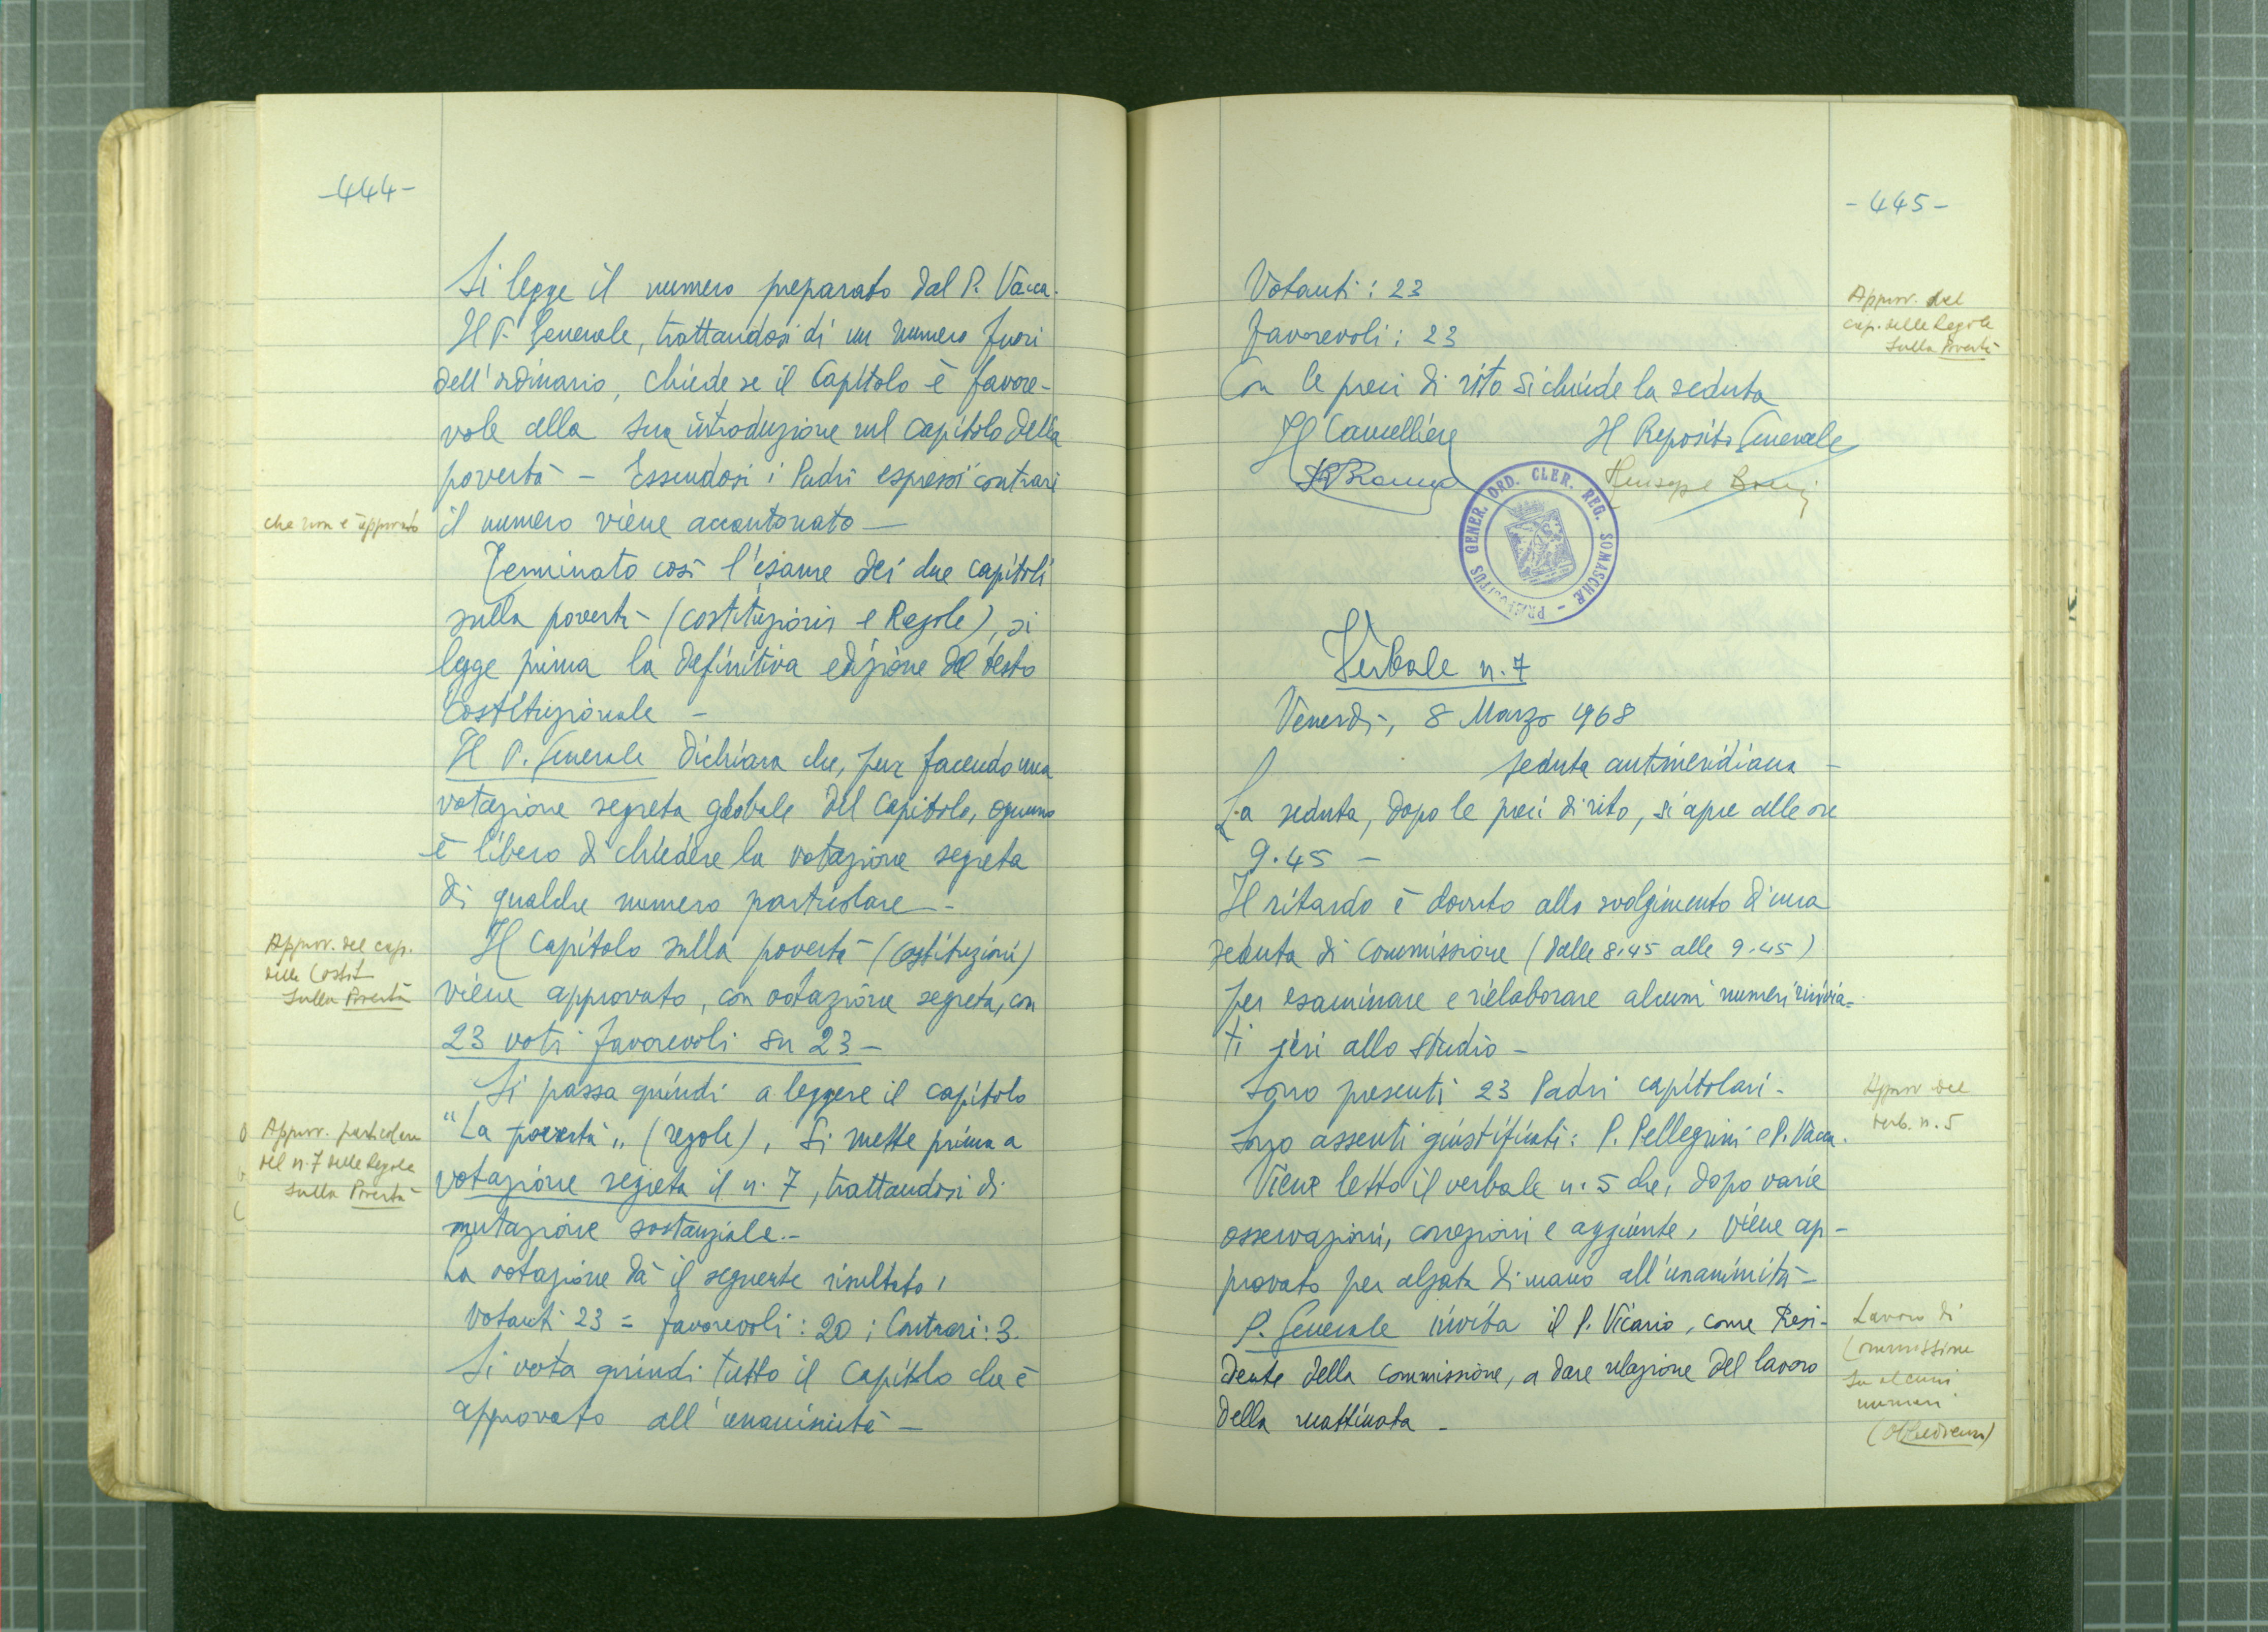 -444-
Si legge il numero preparato dal P. Vacca.
Il P. Generale, trattandosi di un numero fuori
dell'ordinario, chiede se il Capitolo è favore-
vole alla sua introduzione nel capitolo della
povertà - Essendosi i Padri espressi contrari
che non è approvato
il numero viene accantonato -
Terminato così l'esame dei due capitoli
sulla povertà (costituzioni e Regole), si
legge prima la definitiva edizione del testo
Costituzionale -
Il P. Generale dichiara che, pur facendo una
votazione segreta globale del Capitolo, ognuno
è libero di chiedere la votazione segreta
di qualche numero particolare -
Approv. del cap.
delle Costit.
sulla Povertà
Il Capitolo sulla povertà (Costituzioni)
viene approvato, con votazione segreta, con
23 voti favorevoli su 23 -
Si passa quindi a leggere il capitolo
Approv. particolare
del n. 7 delle Regole
sulla Povertà
"La povertà" (regole), Si mette prima a
votazione segreta il n. 7, trattandosi di
mutazione sostanziale. -
La votazione dà il seguente risultato:
Votanti 23 = favorevoli: 20; Contrari: 3.
Si vota quindi tutto il Capitolo che è
approvato all'unanimità -
-445-
Approv. del
cap. delle Regole
sulla Povertà
Votanti: 23
favorevoli: 23
Con le preci di rito si chiude la seduta
Il Cancelliere
Il Preposito Generale
Giuseppe
PRAEPOSITUS GENER. ORD. CLER. REG. SOMASCHAE -
Verbale n. 7
Venerdì, 8 Marzo 1968
seduta antimeridiana -
La seduta, dopo le preci di rito, si apre alle ore
9.45 -
Il ritardo è dovuto allo svolgimento d'una
seduta di Commissione (dalle 8.45 alle 9.45)
per esaminare e rielaborare alcuni numeri rinvia-
ti ieri allo studio -
Sono presenti 23 Padri capitolari -
Approv. del
verb. n. 5
Sono assenti giustificati: P. Pellegrini e P. Vacca.
Viene letto il verbale n. 5 che, dopo varie
osservazioni, correzioni e aggiunte, viene ap-
provato per alzata di mano all'unanimità -
Lavoro di
Commissione
su alcuni
numeri
(Obbedienza)
P. Generale invita il P. Vicario, come Presi-
dente della Commissione, a dare relazione del lavoro
della mattinata -